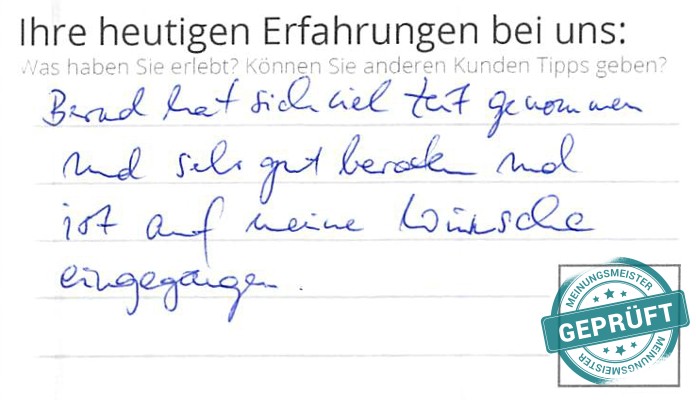 Ihre heutigen Erfahrungen bei uns:
Was haben Sie erlebt? Können Sie anderen Kunden Tipps geben?
Bernd hat sich viel Zeit genommen
und sehr gut beraten und
ist auf meine Wünsche
eingegangen.
MEINUNGSMEISTER
GEPRÜFT
MEINUNGSMEISTER